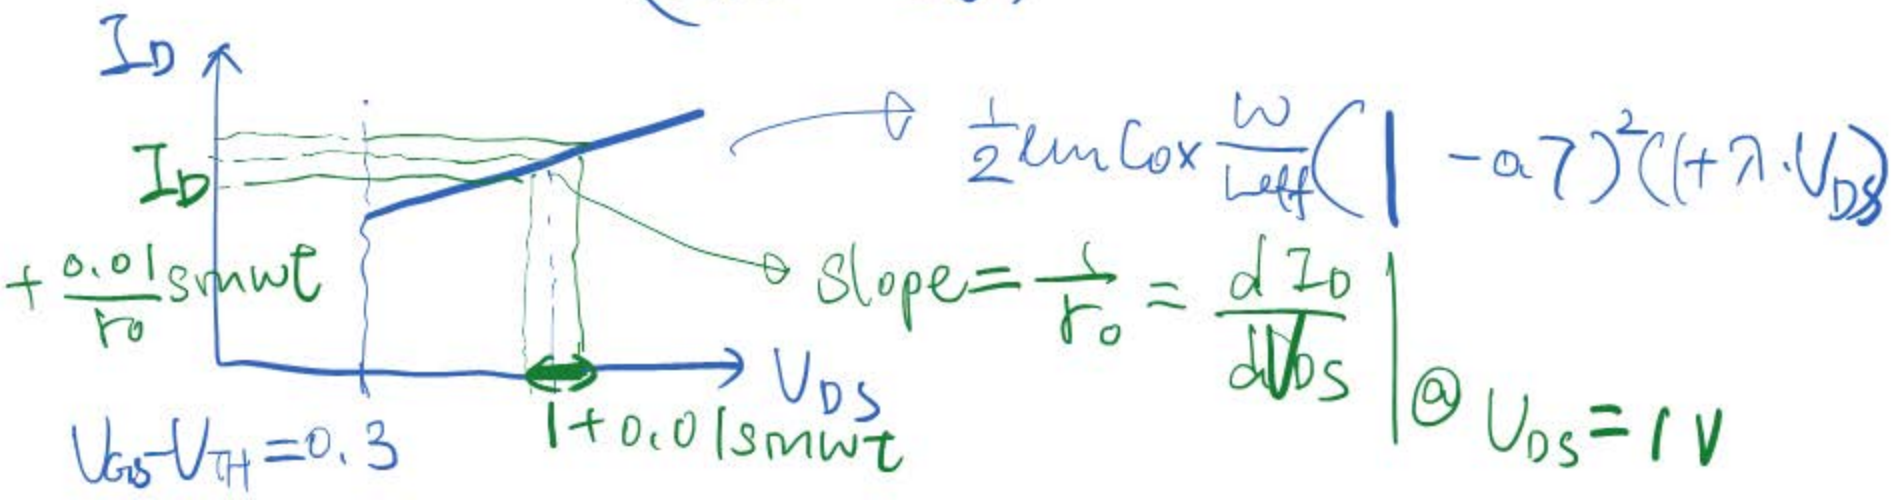 I_D
I_D + \frac{0.01}{r_0} sinωt
V_{GS} - V_{TH} = 0.3
1 + 0.01 sinωt
V_{DS}
\frac{1}{2} μn Cox \frac{W}{Leff} (1 - 0.7)^2 (1 + λ·V_{DS})
Slope = \frac{1}{r_0} = \frac{d I_D}{d V_{DS}} | @ V_{DS} = 1V